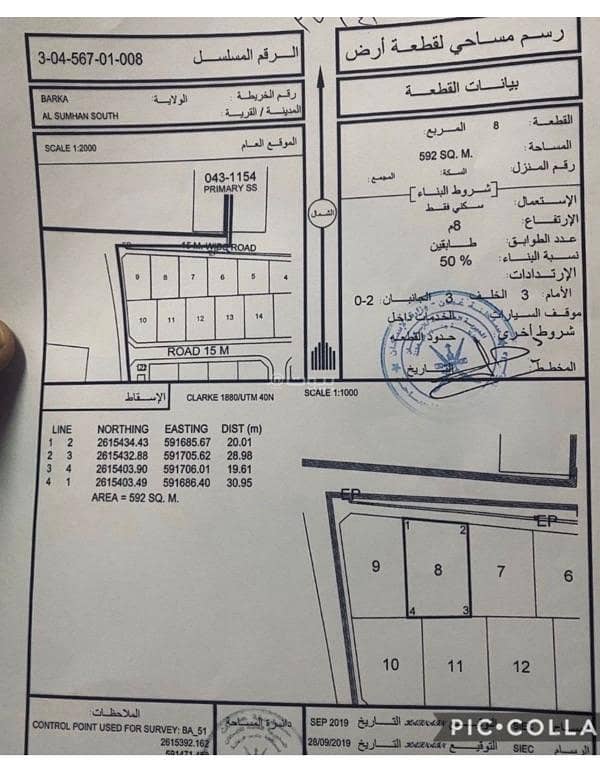 رسم مساحي لقطعة أرض
الرقم المسلسل 3-04-567-01-008
بيانات القطعة
رقم الخريطة :
الولاية: BARKA
المدينة / القرية : AL SUMHAN SOUTH
القطعة : 8 المربع :
المساحة : 592 SQ. M.
رقم المنزل : السكة: المجمع :
شروط البناء
الإستعمال: سكني فقط
الإرتفاع: 8م
عدد الطوابق: طابقين
نسبة البناء: 50 %
الإرتدادات:
الأمام: 3 الخلف 3 الجانبان 2-0
موقف السيارات والخدمات داخل
شروط أخرى حدود القطعة
المخطط: التاريخ
الموقع العام SCALE 1:2000
043-1154
PRIMARY SS
15 M. WIDE ROAD
9 8 7 6 5 4
10 11 12 13 14
ROAD 15 M
الشمال
الإسقاط CLARKE 1880/UTM 40N SCALE 1:1000
LINE NORTHING EASTING DIST (m)
1 2 2615434.43 591685.67 20.01
2 3 2615432.88 591705.62 28.98
3 4 2615403.90 591706.01 19.61
4 1 2615403.49 591686.40 30.95
AREA = 592 SQ. M.
EP
EP
1 2
9 8 7 6
4 3
10 11 12
الملاحظات:
CONTROL POINT USED FOR SURVEY: BA_51
2615392.162
دائرة المساحة
SEP 2019 التاريخ
28/09/2019 التاريخ التوقيع SIEC الرسام
PIC•COLLA